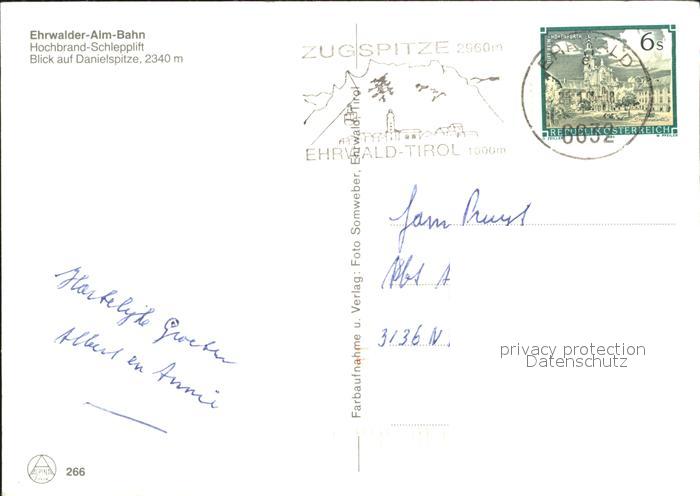 Ehrwalder-Alm-Bahn
Hochbrand-Schlepplift
Blick auf Danielspitze, 2340 m
ZUGSPITZE 2960m
EHRWALD-TIROL 1000m
EHRWALD
6632
6s
REPUBLIK ÖSTERREICH
Farbaufnahme u. Verlag: Foto Somweber, Ehrwald, Tirol
Hartelijke Groeten
Albert en Annie
Fam
3136 N
privacy protection
Datenschutz
266